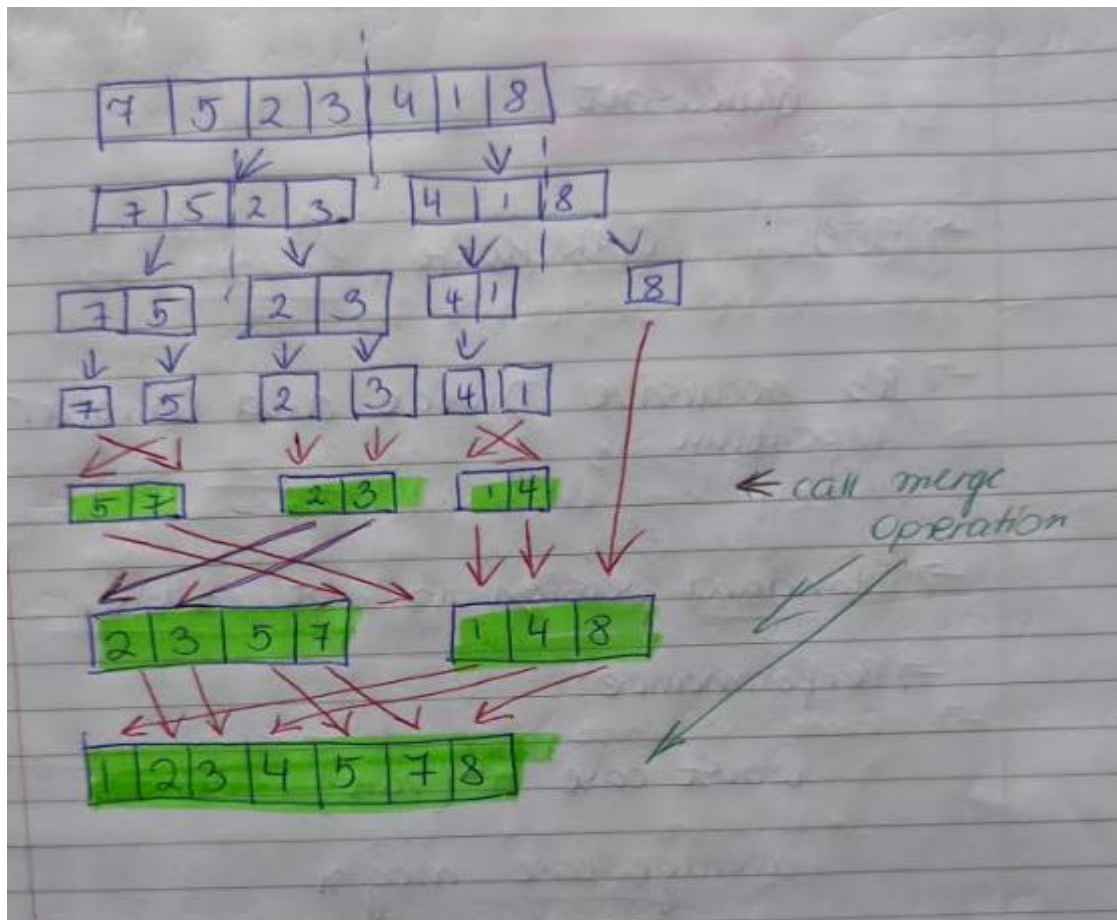 7 5 2 3 4 1 8
7 5 2 3 4 1 8
7 5 2 3 4 1 8
7 5 2 3 4 1
5 7 2 3 1 4
← call merge
operation
2 3 5 7 1 4 8
1 2 3 4 5 7 8